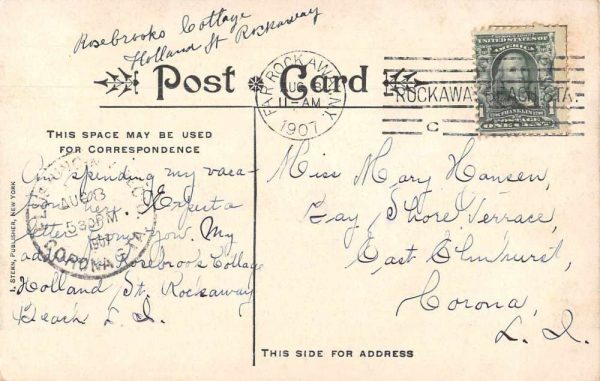 Rosebrooks Cottage
Holland St Rockaway
Post Card
FAR ROCKAWAY, N.Y.
AUG 3
11-AM
1907
ROCKAWAY BEACH STA.
C
UNITED STATES OF AMERICA
FRANKLIN
POSTAGE
ONE CENT
THIS SPACE MAY BE USED
FOR CORRESPONDENCE
Am spending my vaca-
tion here. Expect a
letter from you. My
add. Rosebrook Cottage
Holland St. Rockaway
Beach L. I.
AUG 3
530PM
1907
CORONA STA.
I. STERN, PUBLISHER, NEW YORK
Miss Mary Hansen,
Bay Shore Terrace,
East Elmhurst,
Corona,
L. I.
THIS SIDE FOR ADDRESS